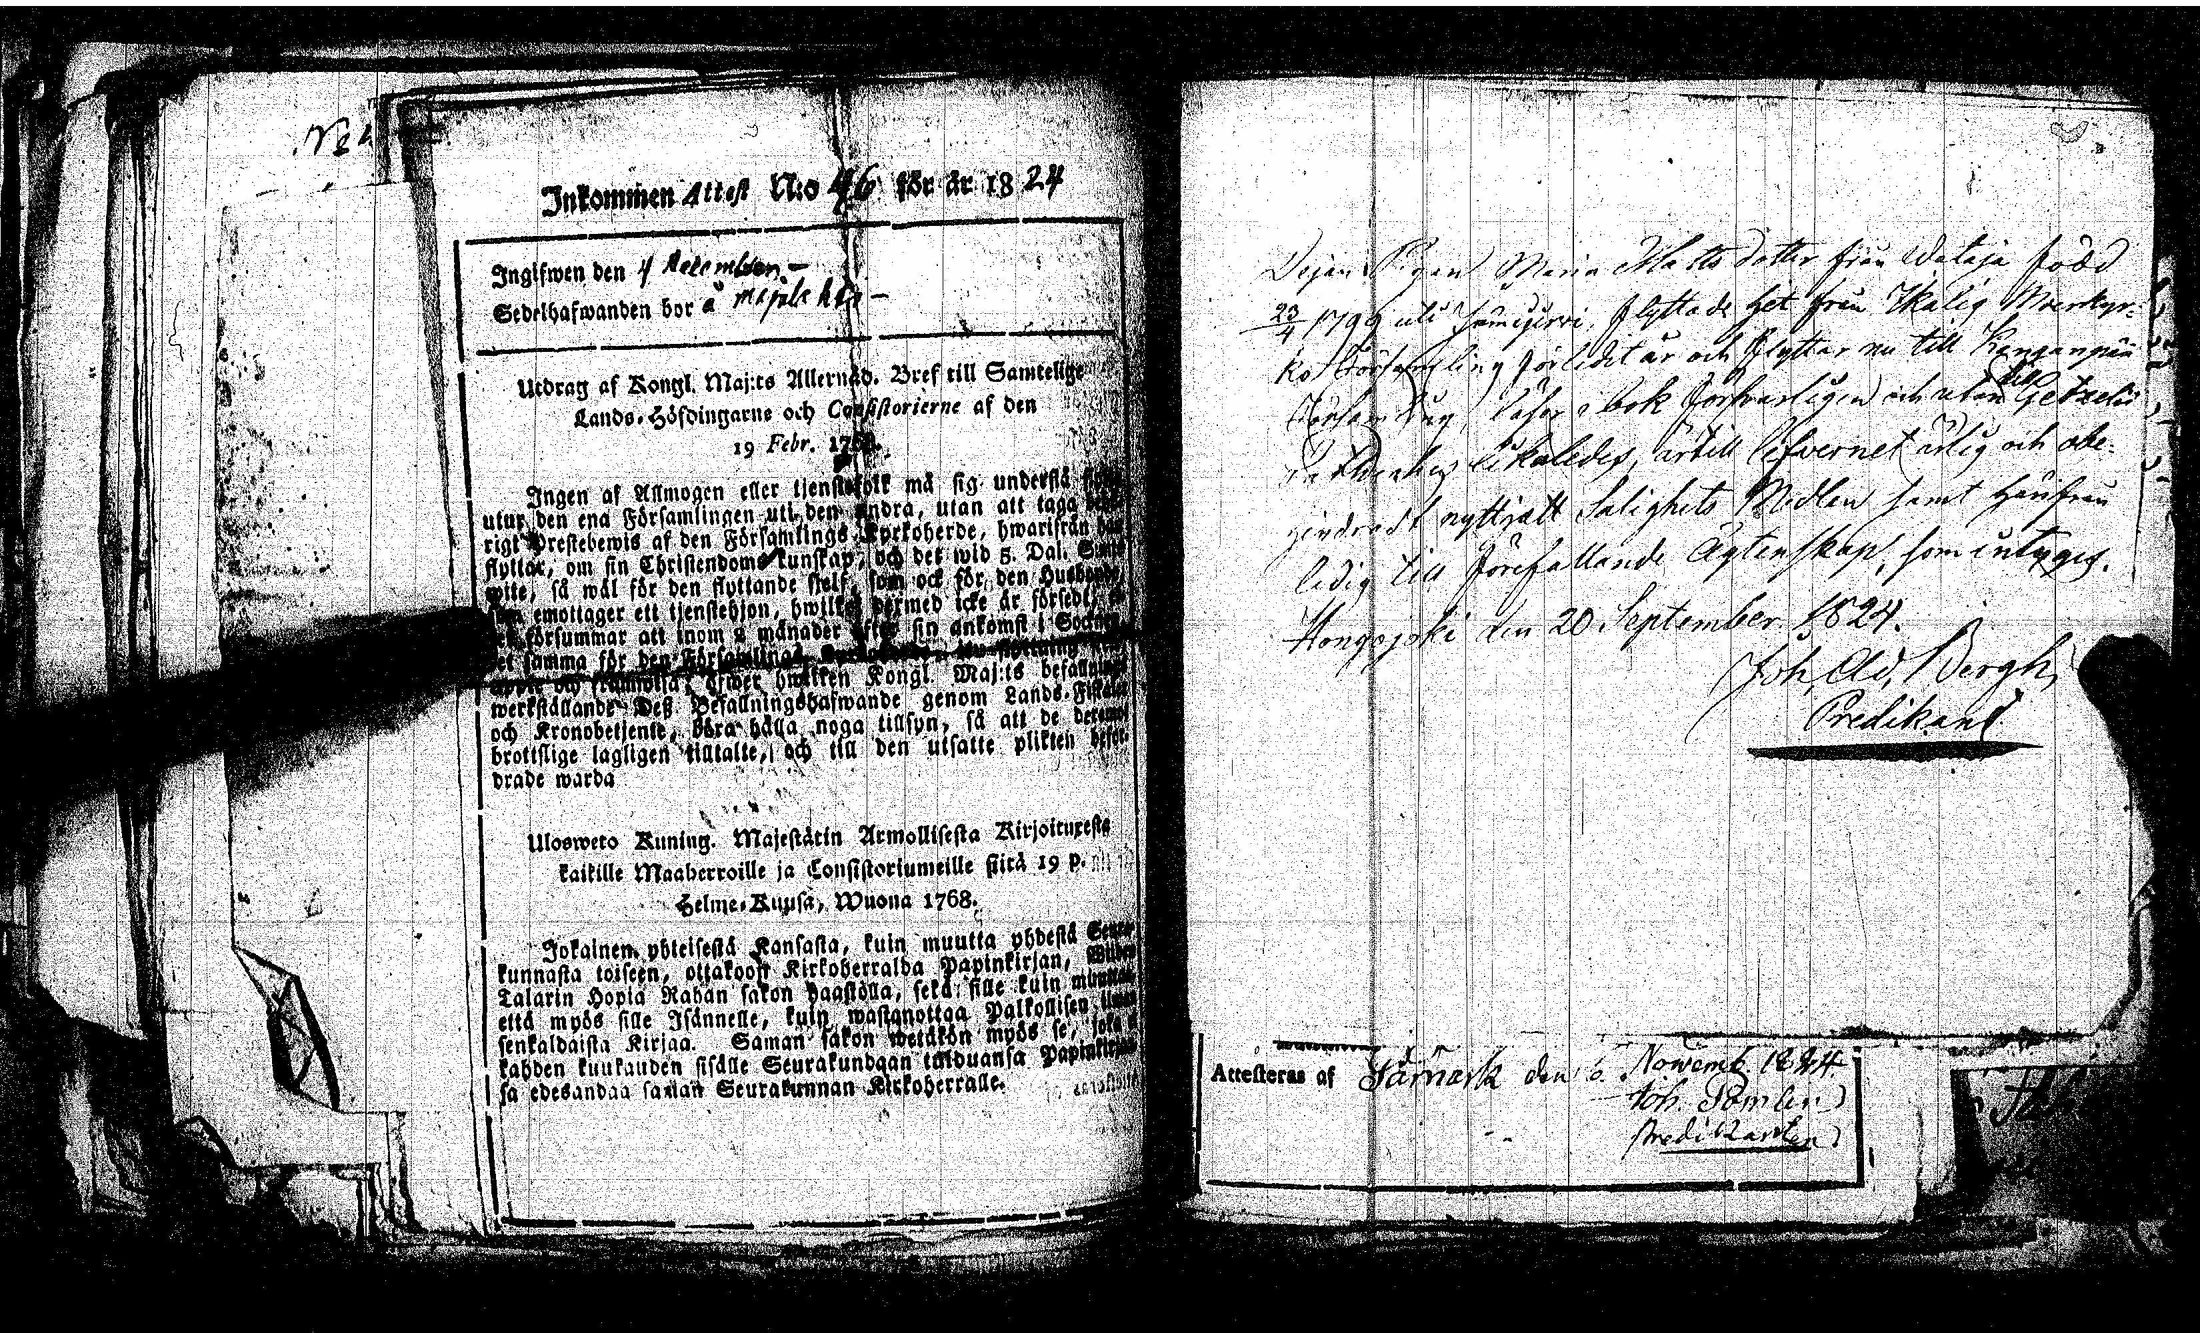 No 4
Inkommen Attest N:o 46 för år 1824
Ingifwen den 4 December
Sedelhafwanden bor å
Utdrag af Kongl. Maj:ts Allernåd. Bref till Samtelige
Lands-Höfdingarne och Consistorierne af den
19 Febr. 1768.
Ingen af Allmogen eller tjenstefolk må sig understå
utur den ena Församlingen uti den andra, utan att taga
rigt Prestebewis af den Församlings Kyrkoherde, hwarifrån han
flyttar, om sin Christendoms kunskap, och det wid 5. Dal. S:mts
wite, så wäl för den flyttande sjelf, som ock för den Husbonde,
som emottager ett tjenstehjon, hwilket dermed icke är försedt;
försummar att inom 2 månader efter sin ankomst i Socknen,
samma för den Församlings
och öfwer hwilken Kongl. Maj:ts befallnings
werkställande Deß Befallningshafwande genom Lands-Fiskaler
och Kronobetjente, böra hålla noga tillsyn, så att de deremot
brottslige lagligen tilltalte, och till den utsatte plikten befor-
drade warda
Ulosweto Kuning. Majestätin Armollisesta Kirjoituxesta
kaikille Maaherroille ja Consistoriumeille siitä 19 p.
Helme-Kuusa, Wuona 1768.
Jokainen yhteisestä Kansasta, kuin muutta yhdestä Seura-
kunnasta toiseen, ottakoon Kirkoherralda Papinkirjan, Wiiden
Talarin Hopia Rahan sakon haastolla, sekä sille kuin muutta
että myös sille Isännelle, kuin wastanottaa Palkollisen ilman
senkaldaista Kirjaa. Saman sakon wetäkön myös se, joka
kahden kuukauden sisälle Seurakundaan tulduansa Papinkirjan
sa edesandaa saman Seurakunnan Kirkoherralle.
Dejan Pigan Maria Matts dotter från Wataja född
23/4 1799 uti Jämijerwi, flyttade hit från Ikalis Moerkyr-
ko Församling förledit år och flyttar nu till Kanganpää
Församling, läser i bok försvarligen och utan till Getzelii
likaledes, är till lefvernet ärlig och obe-
hindradt nyttjatt Salighets Medlen samt härifrån
ledig till förefallande Ägtenskap, som intygas.
Hongojoki den 20 September 1824.
Joh. Ad. Bergh,
Predikant
Attesteras af Jämiark den 6. Novemb 1824
Joh.
Predikanten